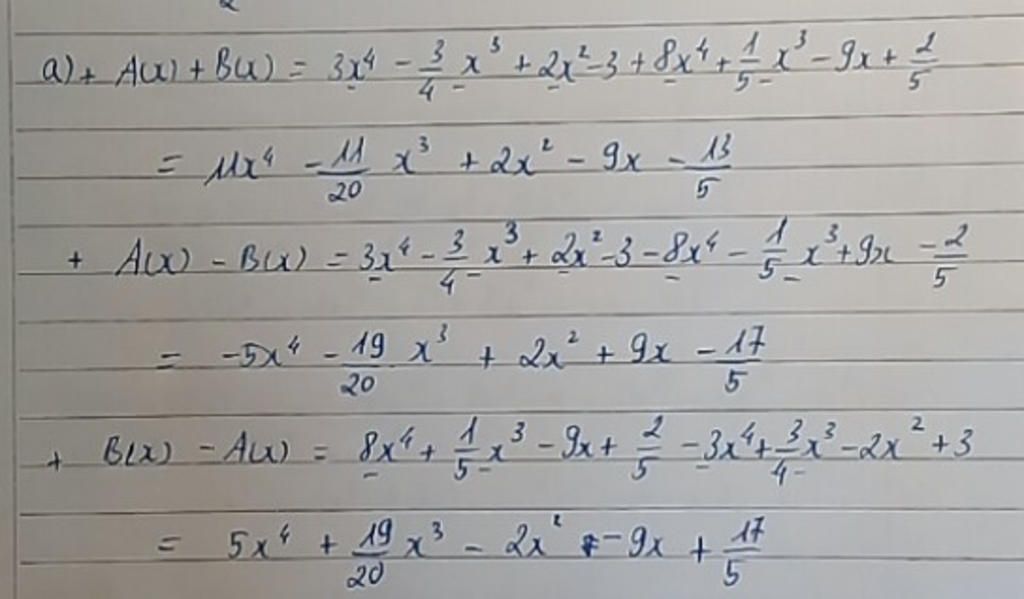 a) + A(x) + B(x) = 3x⁴ - 3/4 x³ + 2x² - 3 + 8x⁴ + 1/5 x³ - 9x + 2/5
= 11x⁴ - 11/20 x³ + 2x² - 9x - 13/5
+ A(x) - B(x) = 3x⁴ - 3/4 x³ + 2x² - 3 - 8x⁴ - 1/5 x³ + 9x - 2/5
= -5x⁴ - 19/20 x³ + 2x² + 9x - 17/5
+ B(x) - A(x) = 8x⁴ + 1/5 x³ - 9x + 2/5 - 3x⁴ + 3/4 x³ - 2x² + 3
= 5x⁴ + 19/20 x³ - 2x² - 9x + 17/5